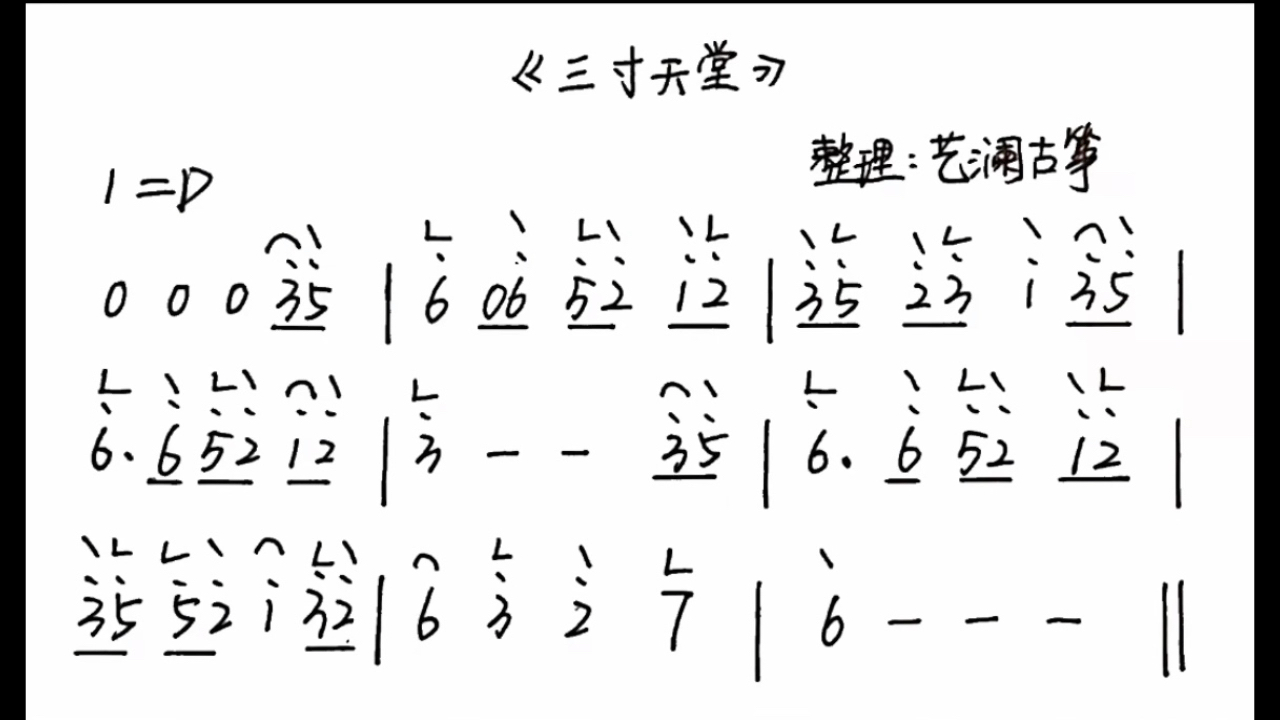 《三寸天堂》
整理:艺澜古筝
1=D
0 0 0 3̇5̇ | 6̇ 06̇ 5̇2̇ 1̇2̇ | 3̇5̇ 2̇3̇ 1̇ 3̇5̇ |
6̇. 6̇ 5̇2̇ 1̇2̇ | 3̇ - - 3̇5̇ | 6̇. 6̇ 5̇2̇ 1̇2̇ |
3̇5̇ 5̇2̇ 1̇ 3̇2̇ | 6 3̇ 2̇ 7 | 6 - - - ‖